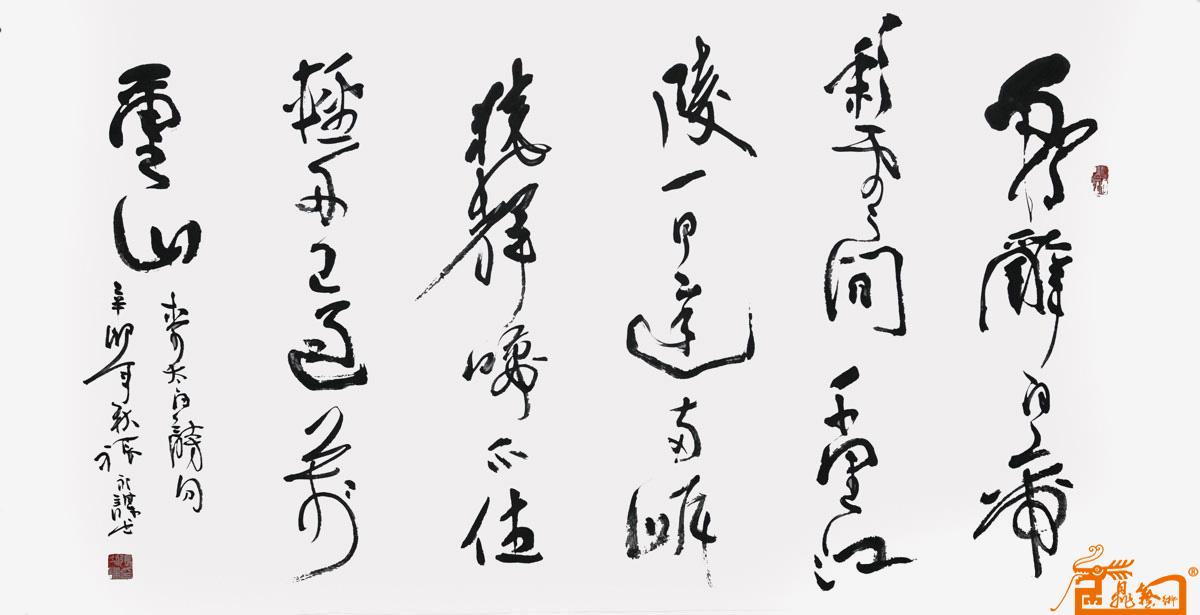 朝辭白帝
彩雲間千里江
陵一日還兩岸
猿聲啼不住
輕舟已過萬
重山
李太白詩句
辛卯年秋